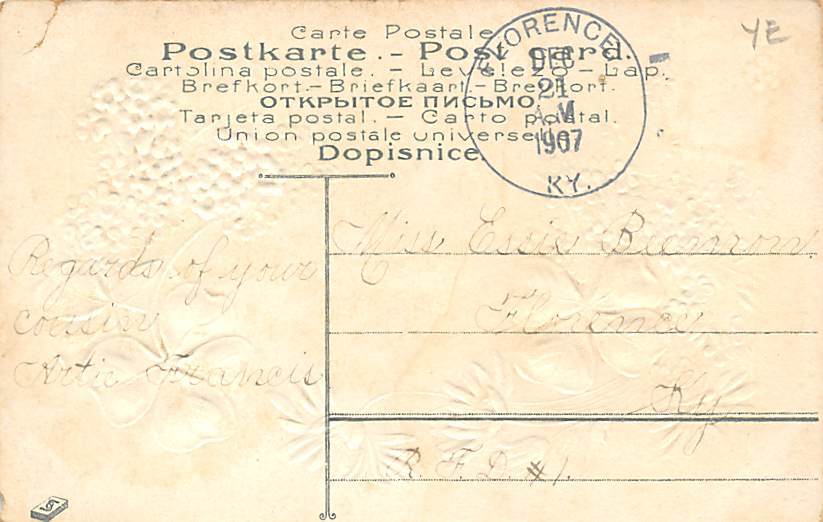 Carte Postale
Postkarte. - Post card.
Cartolina postale. - Levelezö - Lap.
Brefkort. - Briefkaart. - Brevkort.
ОТКРЫТОЕ ПИСЬМО.
Tarjeta postal. - Carto postal.
Union postale universelle
Dopisnice.
FLORENCE
DEC
21
A.M
1907
KY.
YE
Regards of your
cousin
Artie Francis
Miss Essie Beemon
Florence
Ky
R. F. D. #1.